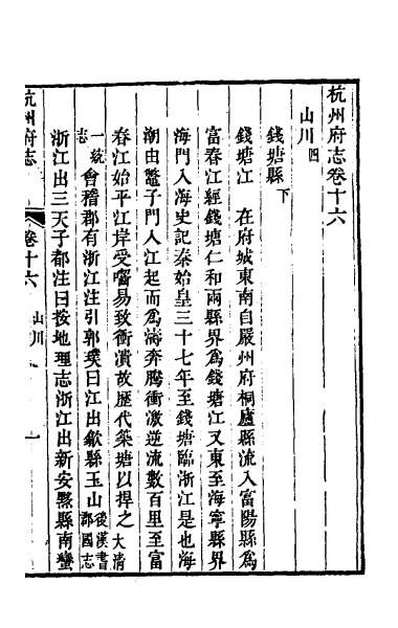 杭州府志卷十六
山川四
錢塘縣下
錢塘江　在府城東南自嚴州府桐廬縣流入富陽縣爲
富春江經錢塘仁和兩縣界爲錢塘江又東至海寧縣界
海門入海史記秦始皇三十七年至錢塘臨浙江是也海
潮由鼈子門入江起而爲濤奔騰衝激逆流數百里至富
春江始平江岸受囓易致衝潰故歷代築塘以捍之大清
一統志會稽郡有浙江注引郭璞曰江出歙縣玉山後漢書郡國志
浙江出三天子都注曰按地理志浙江出新安黟縣南蠻
杭州府志
卷十六
山川
一